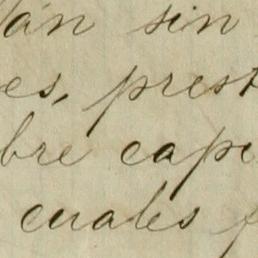 án sin
es, prest
bre cape
cuales f